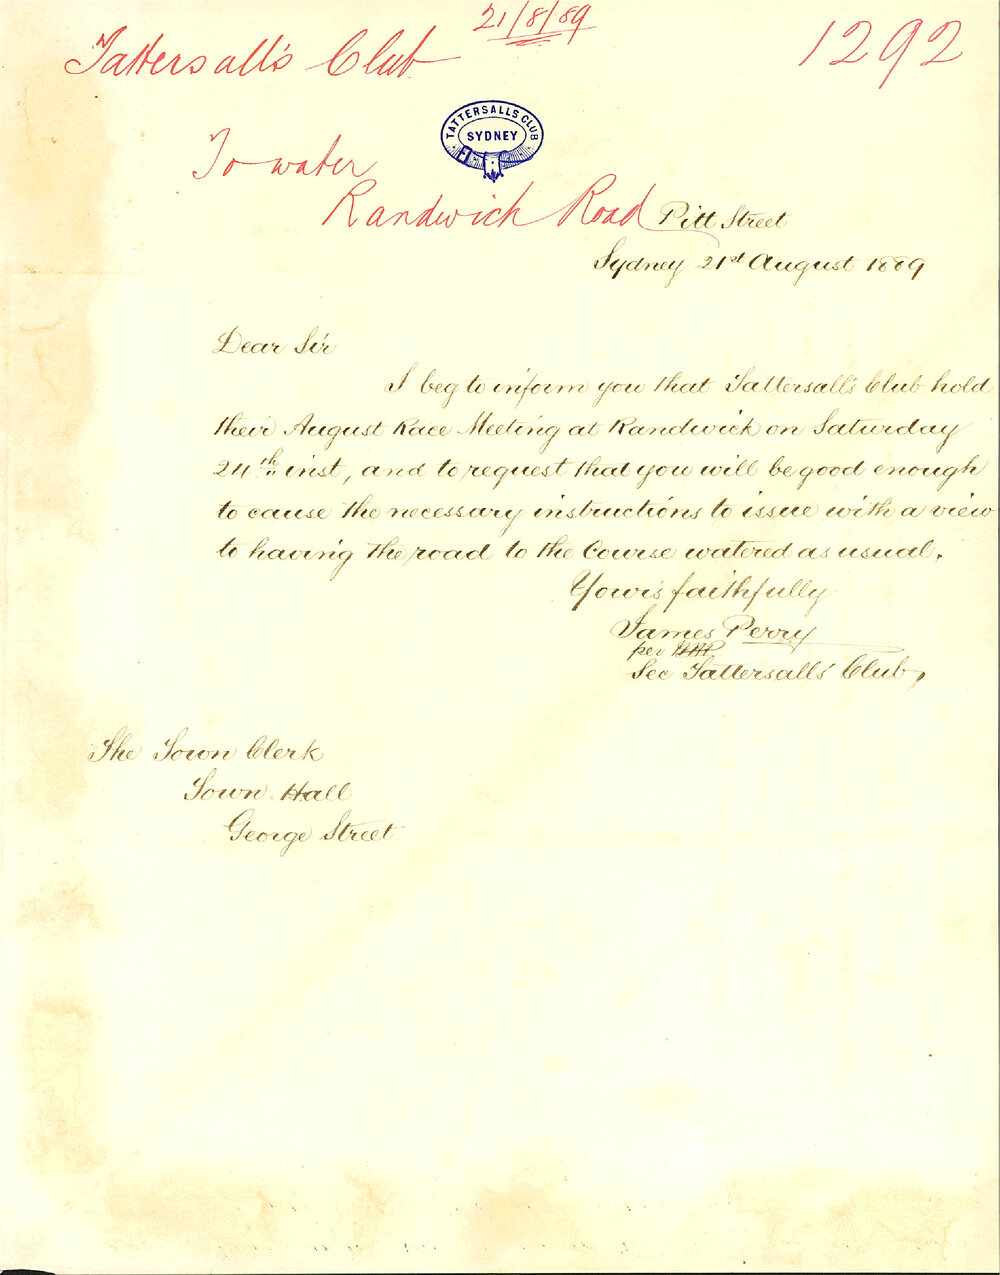 21/8/89
Tattersall's Club
1292
TATTERSALLS CLUB
SYDNEY
To water
Randwick Road
Pitt Street
Sydney 21st August 1889
Dear Sir
I beg to inform you that Tattersall's Club hold
their August Race Meeting at Randwick on Saturday
24th inst, and to request that you will be good enough
to cause the necessary instructions to issue with a view
to having the road to the Course watered as usual.
Yours faithfully
James Perry
per
Sec Tattersalls' Club,
The Town Clerk
Town Hall
George Street